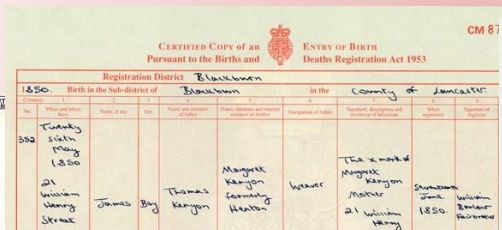 CM 87
CERTIFIED COPY of an ENTRY OF BIRTH
Pursuant to the Births and Deaths Registration Act 1953
Registration District Blackburn
1850. Birth in the Sub-district of Blackburn in the County of Lancaster
Columns 1 2 3 4 5 6 7 8 9
No. When and where born Name, if any Sex Name and surname of father Name, surname and maiden surname of mother Occupation of father Signature, description and residence of informant When registered Signature of registrar
352 Twenty sixth May 1850 21 William Henry Street James Boy Thomas Kenyon Margaret Kenyon formerly Heaton Weaver The x mark of Margaret Kenyon Mother 21 William Henry Seventeenth June 1850. William